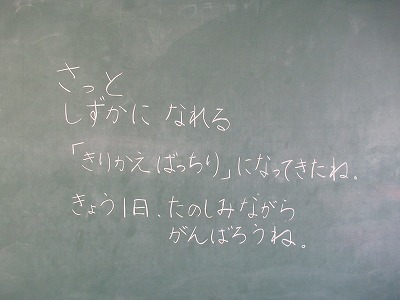 さっと
しずかに なれる
「きりかえ ばっちり」になってきたね。
きょう1日、たのしみながら
がんばろうね。